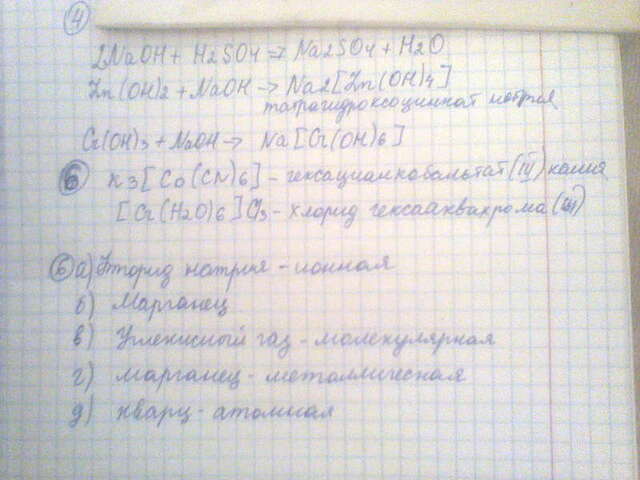 4
2NaOH + H2SO4 → Na2SO4 + H2O
Zn(OH)2 + NaOH → Na2[Zn(OH)4]
тетрагидроксоцинкат натрия
Cr(OH)3 + NaOH → Na[Cr(OH)6]
K3[Co(CN)6] - гексацианкобальтат(III) калия
[Cr(H2O)6]Cl3 - хлорид гексааквахрома(III)
6 а) Фторид натрия - ионная
б) Марганец
в) Углекислый газ - молекулярная
г) марганец - металлическая
д) кварц - атомная